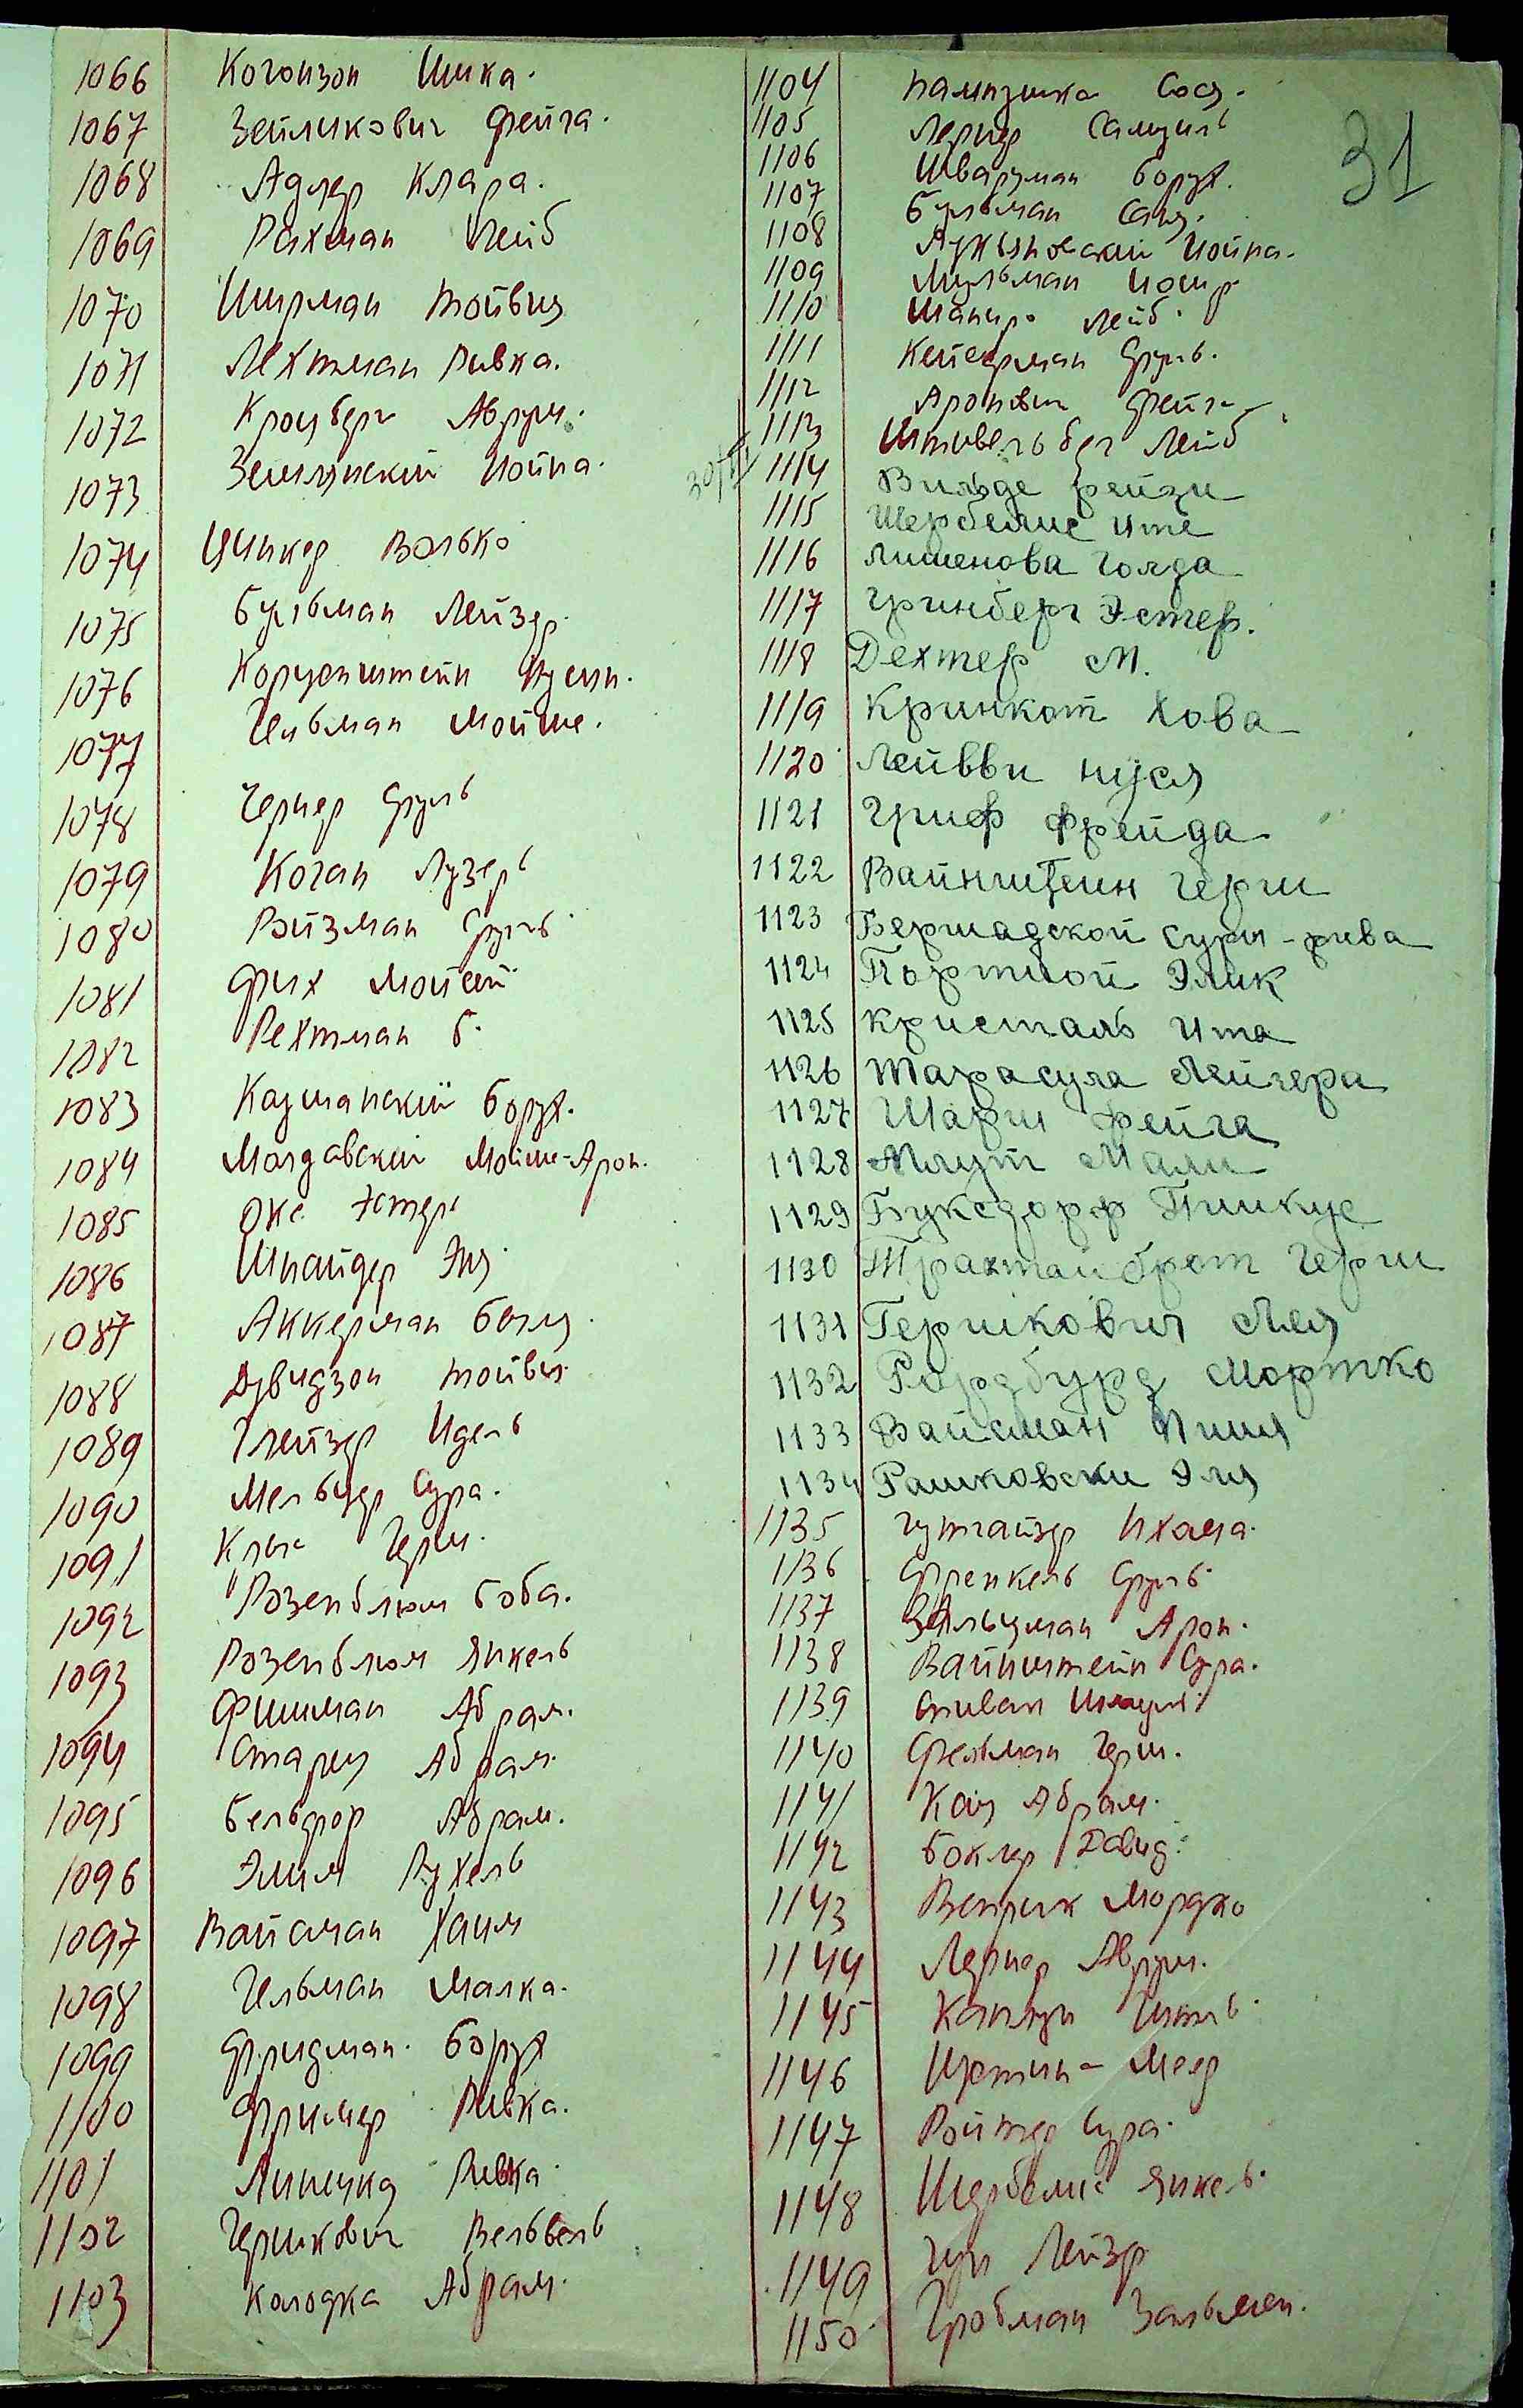 31
1066 Когонзон Шика.
1067 Зейликович Фейга.
1068 Адлер Клара.
1069 Рахман Лейб
1070 Ширман Тойвия
1071 Лехтман Ривка.
1072 Кройтберг Аврум.
1073 Землянский Иойна.
1074 Цинкер Волько
1075 Бульман Лейзер.
1076 Корценштейн Нусин.
1077 Гельман Мойше.
1078 Гернер Сруль
1079 Коган Лузер
1080 Ройзман Сруль
1081 Фих Мойсей
1082 Рехтман Б.
1083 Каушанский Борух.
1084 Молдавский Мойше-Арон.
1085 Окс Эстер
1086 Шнайдер Эля
1087 Аккерман Бейля.
1088 Дувидзон Тойвия.
1089 Глейзер Идель
1090 Мельцер Сура.
1091 Клын Герш.
1092 " Розенблюм Боба.
1093 Розенблюм Янкель
1094 Фишман Абрам.
Стариц Абрам.
1095 Бельфор Абрам.
1096 Элия Рухель
1097 Вайсман Хаим
1098 Гельман Малка.
1099 Фридман. Борух
1100 Фример Ривка.
1101 Ривка
1102 Гершкович Вельвель
1103 Колодка Абрам.
1104 Сося.
1105 Лернер Самуиль
1106 Шварцман Борух.
1107 Бульман
1108 Лукьяновский Иойна.
1109 Мульман Иосиф
1110 Шапиро Лейб.
1111 Кейсерман Сруль.
1112 Аронович Фейга
30/III 1113 Лейб
1114 Вильде Рейзи
1115 Щербелис Ите
1116 Лишенова Голда
1117 Гринберг Эстер.
1118 Дехтер М.
1119 Кринкот Хова
1120 Лейвви Нуся
1121 Гриф Фрейда
1122 Вайнштеин Герш
1123 Бершадской Сури-рива
1124 Портной Элик
1125 Кристаль Ита
1126 Тарасула Лейгера
1127 Шарш Фейга
1128 Мали
1129 Буксдорф Пинкус
1130 Трахтанброт Герш
1131 Гершкович Лея
1132 Мортко
1133 Вайсман Пиня
1134 Рашковски Эля
1135 Гутгайзер Нхама.
1136 Френкель Сруль.
1137 Зальцман Арон.
1138 Вайнштейн Сура.
1139 Спивак Шмуль
1140 Фельман Герш.
1141 Кац Абрам.
1142 Боклер Давид.
1143 Вепрек Мордко
1144 Лернер Аврум.
1145 Каплун
1146 Меер
1147 Ройтер Сура.
1148 Щербелис Янкель.
1149 Лейзер
1150 Гробман Зальмен.